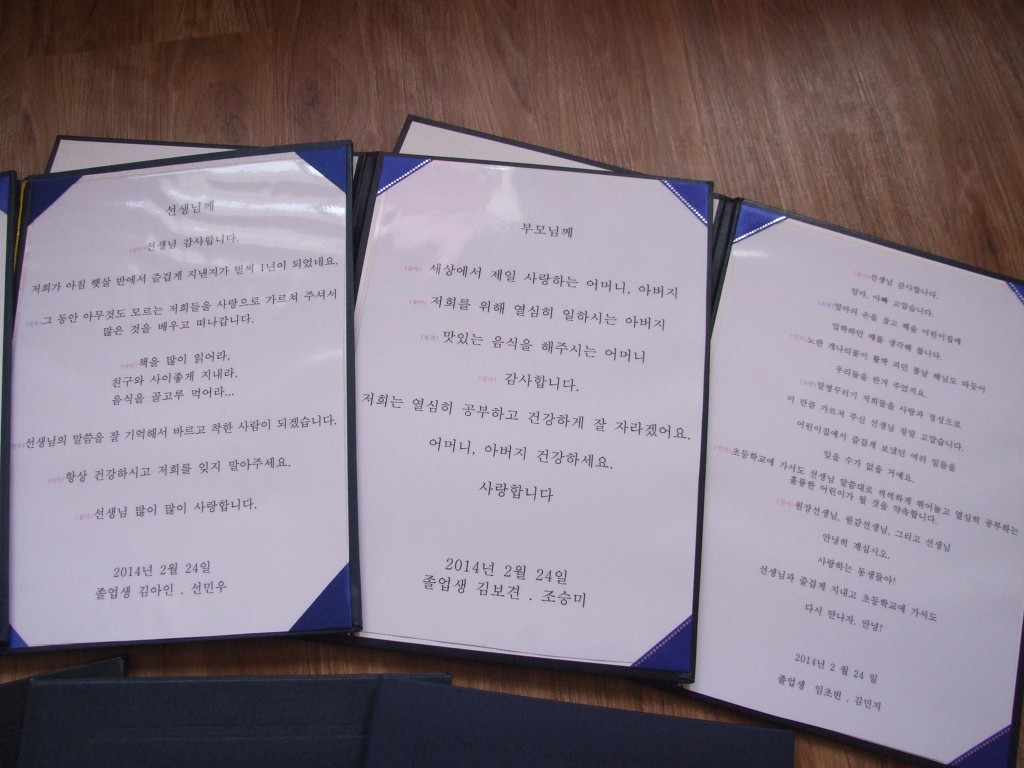 선생님께
선생님 감사합니다.
저희가 아침 햇살 반에서 즐겁게 지낸지가 벌써 1년이 되었네요.
그 동안 아무것도 모르는 저희들을 사랑으로 가르쳐 주셔서
많은 것을 배우고 떠나갑니다.
책을 많이 읽어라,
친구와 사이좋게 지내라,
음식을 골고루 먹어라...
선생님의 말씀을 잘 기억해서 바르고 착한 사람이 되겠습니다.
항상 건강하시고 저희를 잊지 말아주세요.
선생님 많이 많이 사랑합니다.
2014년 2월 24일
졸업생 김아인 . 선민우
부모님께
세상에서 제일 사랑하는 어머니, 아버지
저희를 위해 열심히 일하시는 아버지
맛있는 음식을 해주시는 어머니
감사합니다.
저희는 열심히 공부하고 건강하게 잘 자라겠어요.
어머니, 아버지 건강하세요.
사랑합니다
2014년 2월 24일
졸업생 김보견 . 조승미
선생님 감사합니다.
엄마, 아빠 고맙습니다.
엄마의 손을 잡고 해올 어린이집에
입학하던 때를 생각해 봅니다.
노란 개나리꽃이 활짝 피던 봄날 해님도 따뜻이
우리들을 반겨 주었지요.
말썽꾸러기 저희들을 사랑과 정성으로
이 만큼 가르쳐 주신 선생님 정말 고맙습니다.
어린이집에서 즐겁게 보냈던 여러 일들을
잊을 수가 없을 거예요.
초등학교에 가서도 선생님 말씀대로 씩씩하게 뛰어놀고 열심히 공부하는
훌륭한 어린이가 될 것을 약속합니다.
원장선생님, 원감선생님, 그리고 선생님
안녕히 계십시오.
사랑하는 동생들아!
선생님과 즐겁게 지내고 초등학교에 가서도
다시 만나자. 안녕!
2014년 2 월 24 일
졸업생 임초빈 . 김민지